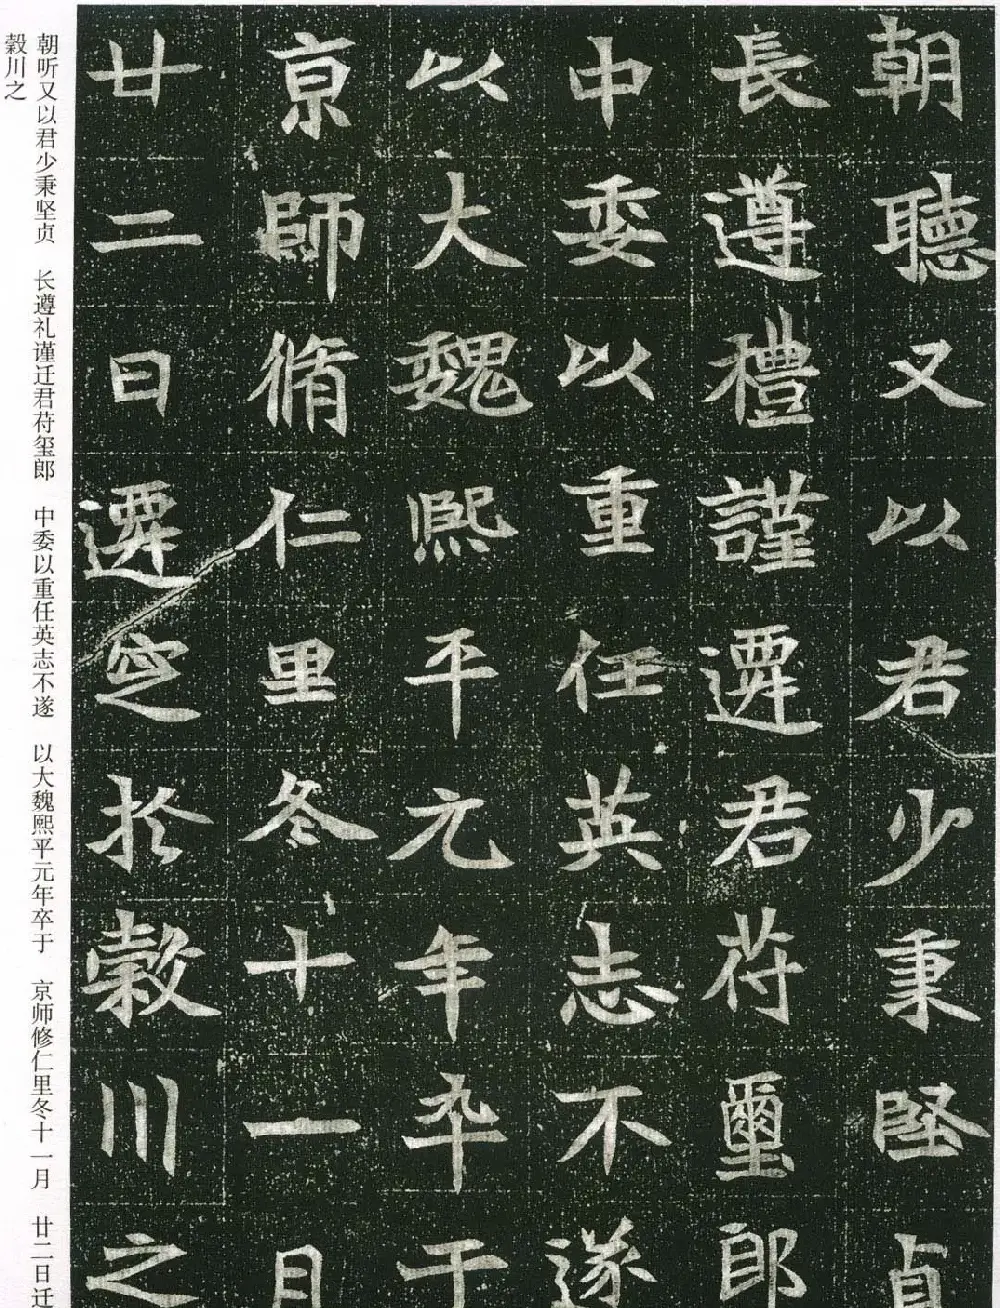 朝聽又以君少秉堅貞
長遵禮謹遷君苻璽郎
中委以重任英志不遂
以大魏熙平元年卒于
京師脩仁里冬十一月
廿二日遷窆於穀川之
朝听又以君少秉坚贞　长遵礼谨迁君苻玺郎　中委以重任英志不遂　以大魏熙平元年卒于　京师修仁里冬十一月　廿二日迁
穀川之